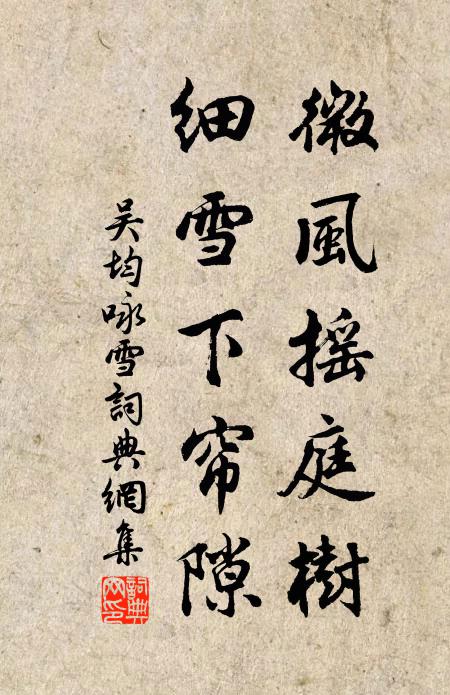 微風摇庭樹
细雪下帘隙
吴均咏雪詞典網集
詞典網印